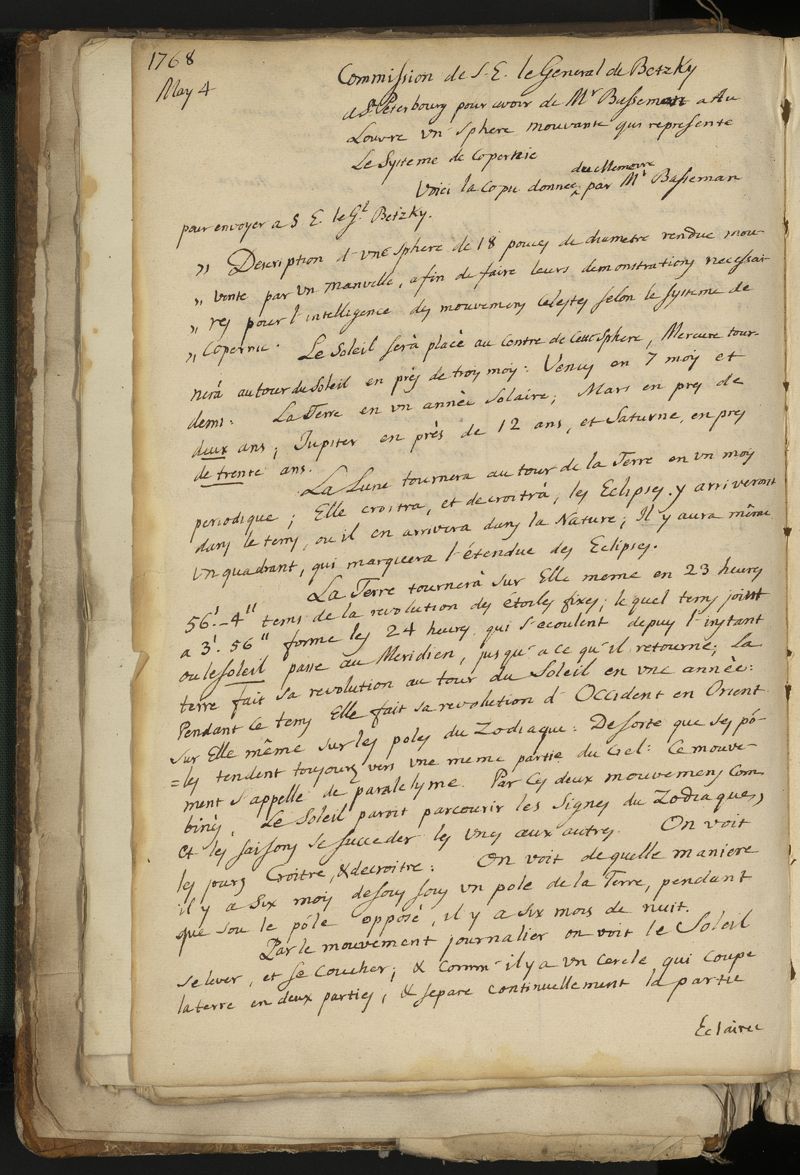 1768
May 4
Commission de S. E. le General de Betzky
a St Peterbourg pour avoir de Mr Basseman a Au
Louvre un sphere mouvante qui represente
Le Systeme de Copernic
du Memoire
Voici la Copie donnee ^ par Mr Basseman
pour envoyer a S E le Gl Betzky.
" Description d'une Sphere de 18 pouces de diametre rendue mou-
" vente par un manvelle, afin de faire leurs demonstrations necessai-
" res pour l'intelligence des mouvemens Celestes selon le systeme de
" Copernic. Le Soleil serà placè au Centre de Cette Sphere, Mercure tour-
nerà autour du Soleil en près de troy moy: Venus en 7 moy et
demi: La Terre en un annèe Solaire; Mars en pres de
deux ans; Jupiter en près de 12 ans, et Saturne, en pres
de trente ans.
La Lune tournera autour de la Terre en un moy
periodique; Elle croitra, et decroitrà, les Eclipses y arriveront
dans le tems, ou il en arrivera dans la Nature; Il y aura même
un quadrant, qui marquera l'étendue des Eclipses.
La Terre tournerà sur Elle meme en 23 heures
56'.-4" tems de la revolution des étoiles fixes; le quel tems joint
a 3'. 56" forme les 24 heures qui s'ecoulent depuy l'instant
ou le soleil passe au Meridien, jusqu'a ce qu'il retourne; La
terre fait sa revolution au tour du Soleil en une annèe:
Pendant Ce tems Elle fait sa revolution d'Occident en Orient
sur Elle même sur les poles du Zodiaque: De sorte que ses pô-
=les tendent toujours vers une meme partie du Ciel: Ce mouve-
ment s'appelle de paralelisme. Par Ces deux mouvemens Com-
binés, Le Soleil paroit parcourir les Signes du Zodiaque,
Et les saisons se succeder les unes aux autres. On voit
les jours Croitre, & decroitre: On voit de quelle maniere
il y a Six moy de jour sous un pole de la Terre, pendant
que sou le pôle opposè, il y a six mois de nuit.
Par le mouvement journalier on voit le Soleil
se lever, et se Coucher; & Comm' il y a un Cercle qui Coupe
la terre en deux parties, & separe continuellement la partie
Eclairee